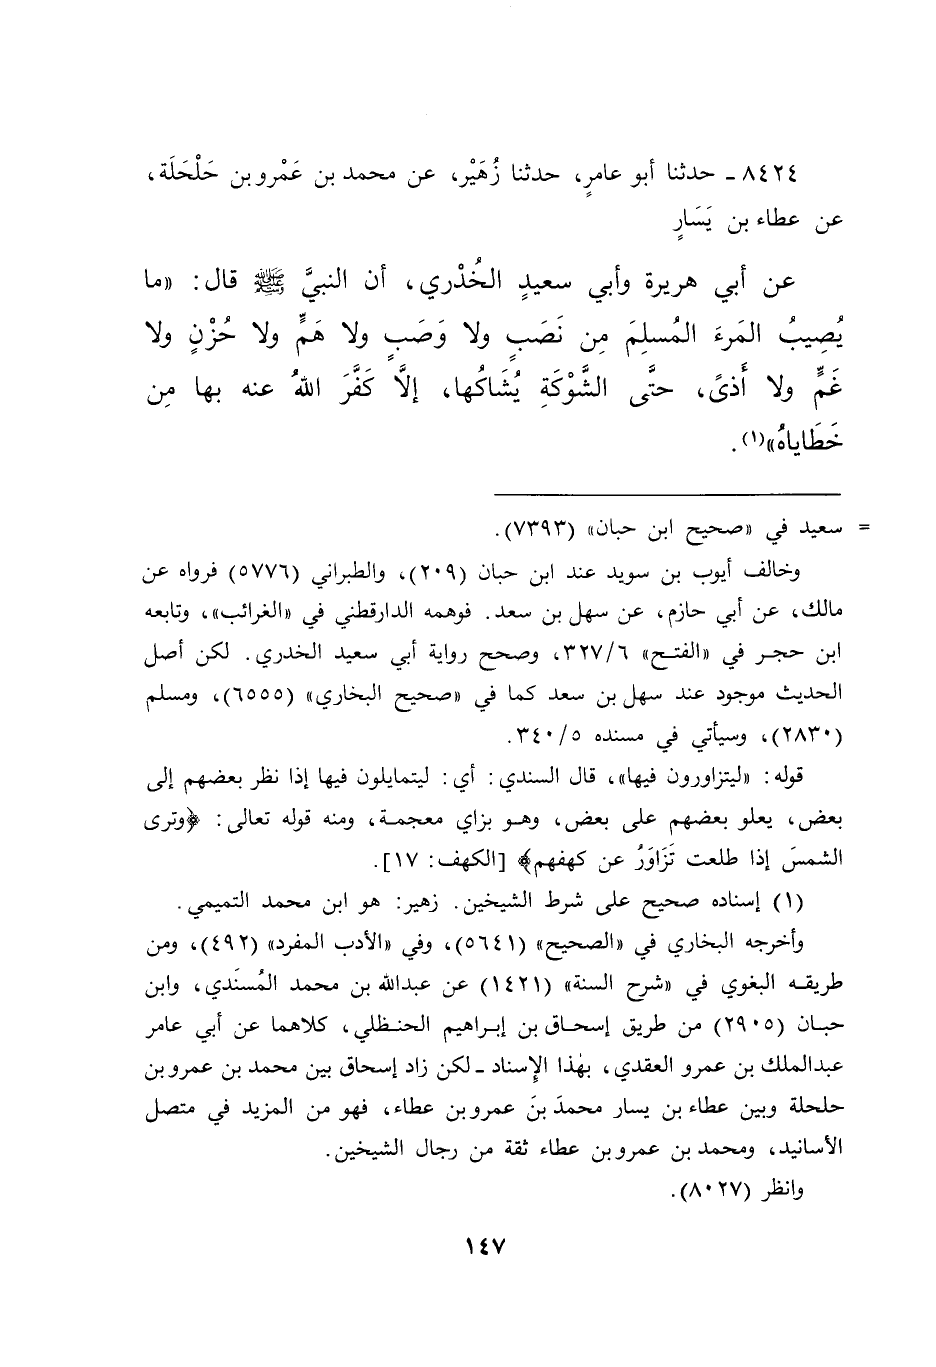 ٨٤٢٤ ـ حدثنا أبو عامرٍ، حدثنا زُهَيْر، عن محمد بن عَمْرو بن حَلْحَلَة،
عن عطاء بن يَسَارٍ
عن أبي هريرة وأبي سعيدٍ الخُدْري، أن النبيَّ ﷺ قال: «ما
يُصِيبُ المَرءَ المُسلِمَ مِن نَصَبٍ ولا وَصَبٍ ولا هَمٍّ ولا حُزْنٍ ولا
غَمٍّ ولا أَذىً، حتَّى الشَّوْكَةِ يُشَاكُها، إلَّا كَفَّرَ اللهُ عنه بها مِن
خَطَاياهُ»(١).
= سعيد في «صحيح ابن حبان» (٧٣٩٣).
وخالف أيوب بن سويد عند ابن حبان (٢٠٩)، والطبراني (٥٧٧٦) فرواه عن
مالك، عن أبي حازم، عن سهل بن سعد. فوهمه الدارقطني في «الغرائب»، وتابعه
ابن حجر في «الفتح» ٣٢٧/٦، وصحح رواية أبي سعيد الخدري. لكن أصل
الحديث موجود عند سهل بن سعد كما في «صحيح البخاري» (٦٥٥٥)، ومسلم
(٢٨٣٠)، وسيأتي في مسنده ٣٤٠/٥.
قوله: «ليتزاورون فيها»، قال السندي: أي: ليتمايلون فيها إذا نظر بعضهم إلى
بعض، يعلو بعضهم على بعض، وهو بزاي معجمة، ومنه قوله تعالى: ﴿وترى
الشمسَ إذا طلعت تَزَاوَرُ عن كهفهم﴾ [الكهف: ١٧].
(١) إسناده صحيح على شرط الشيخين. زهير: هو ابن محمد التميمي.
وأخرجه البخاري في «الصحيح» (٥٦٤١)، وفي «الأدب المفرد» (٤٩٢)، ومن
طريقه البغوي في «شرح السنة» (١٤٢١) عن عبدالله بن محمد المُسنَدي، وابن
حبان (٢٩٠٥) من طريق إسحاق بن إبراهيم الحنظلي، كلاهما عن أبي عامر
عبدالملك بن عمرو العقدي، بهٰذا الإسناد ـ لكن زاد إسحاق بين محمد بن عمرو بن
حلحلة وبين عطاء بن يسار محمدَ بنَ عمرو بن عطاء، فهو من المزيد في متصل
الأسانيد، ومحمد بن عمرو بن عطاء ثقة من رجال الشيخين.
وانظر (٨٠٢٧).
١٤٧